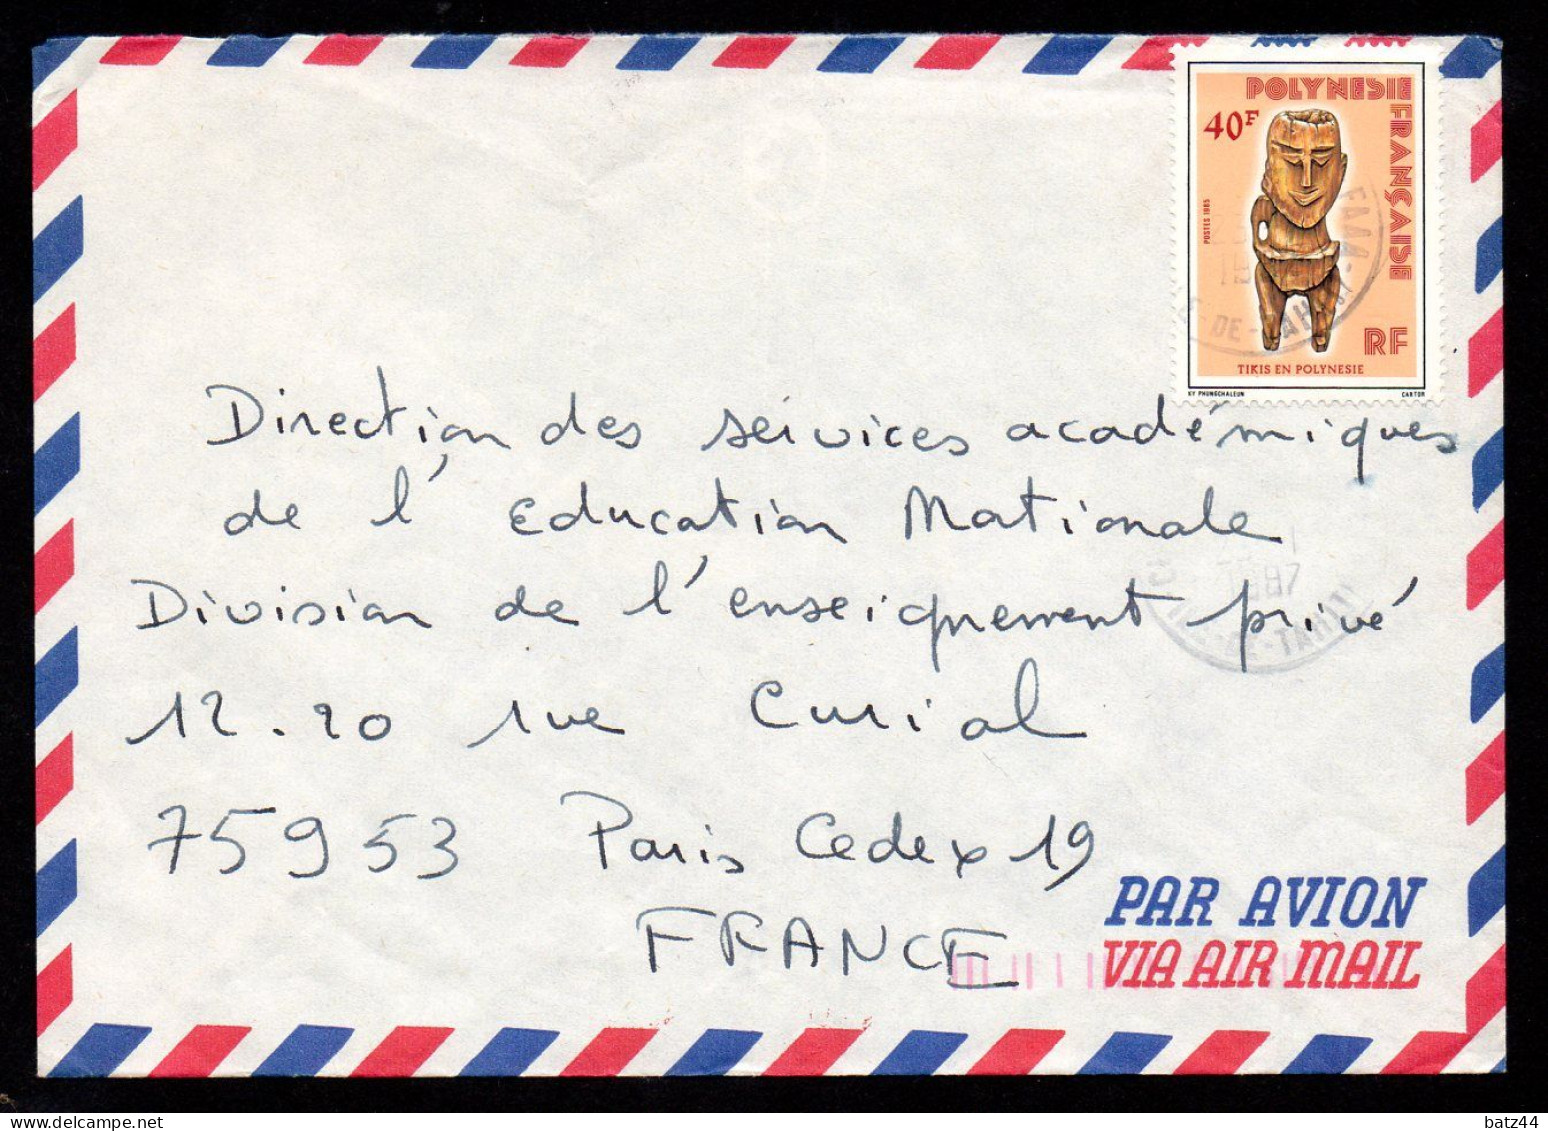 POLYNESIE
FRANÇAISE
40F
POSTES 1985
RF
TIKIS EN POLYNESIE
KY PHUNGCHALEUN CARTOR
FAAA
DE-TAHITI
Direction des services académiques
de l'Education Nationale
Division de l'enseignement privé
1987
DE-TAHITI
12.20 rue Curial
75953 Paris Cedex 19
FRANCE
PAR AVION
VIA AIR MAIL
batz44